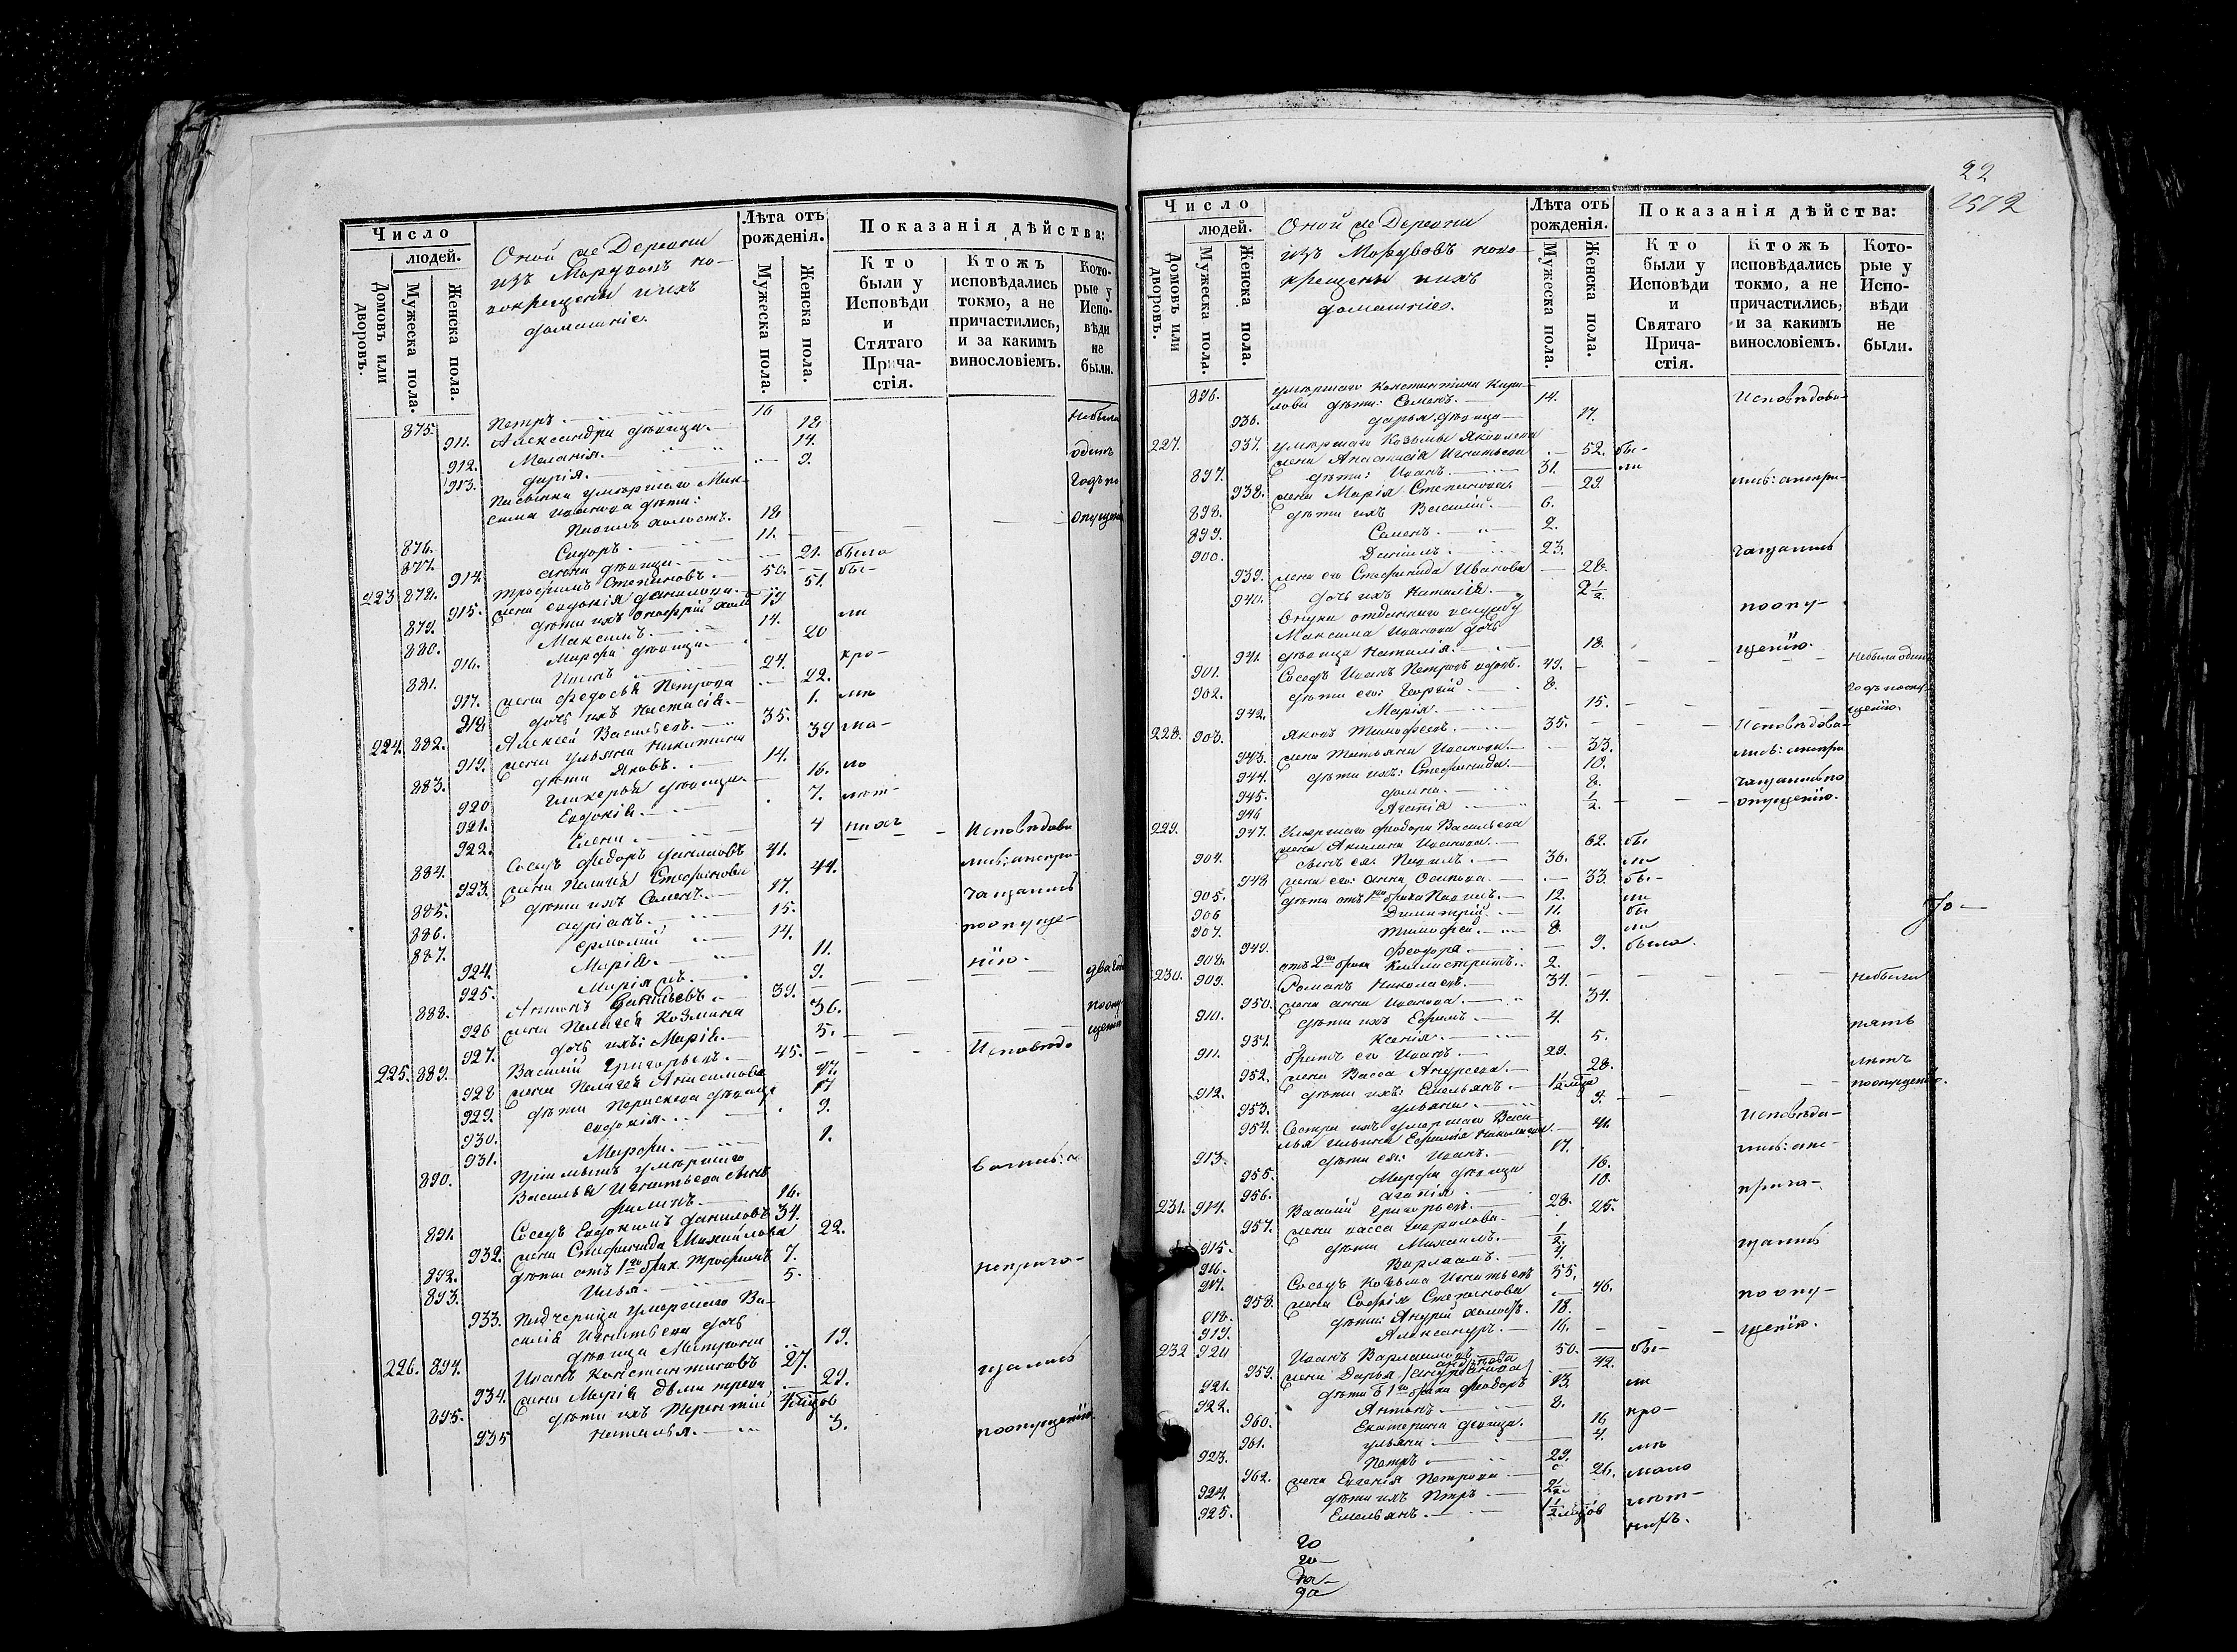 Число
людей.
Домовъ или дворовъ.
Мужеска пола.
Женска пола.
Оной же Деревни
изъ Мордвовъ но-
вокрещены и ихъ
домашніе.
Лѣта отъ
рожденія.
Мужеска пола.
Женска пола.
Показанія дѣйства:
Кто
были у
Исповѣди
и
Стятаго
Прича-
стія.
Ктожъ
исповѣдались
токмо, а не
причастились,
и за какимъ
винословіемъ.
Кото-
рые у
Испо-
вѣди
не
были.
875. Петръ. 16
911. Александра дѣвица. 18 небыли
912. Меланія. 14.
913. Дарія. 9. одинъ
Пасынки умершаго Мак-
сима Иванова дѣти: годъ по
876. Павелъ холостъ. 18 опущен
877. Сидоръ. 11.
914. дѣвица. 21. была
223 878. Трофимъ Степановъ. 50. бы-
915. жена Евдокія Данилова. 51.
879. дѣти ихъ Онофрій холо 19
880. Максимъ. 14. ли
916. Марфа дѣвица. 20
881. 24. кро-
917. жена Федосья Петрова 22.
918 дочь ихъ Настасія. 1. мѣ
224. 882. Алексѣй Васильевъ. 35.
919. жена Ульяна Никитина 39 ма-
883. дѣти Яковъ. 14.
920 Гликерья дѣвица 16. ло
921. Евдокія. 7. лѣт-
922. Елена. 4 нихъ
884. Сосѣдъ Федоръ Даниловъ 41. Исповѣдова
923. жена Пелагея Стефанова 44. лись: а непри-
885. дѣти ихъ Семенъ. 17.
886. Адріанъ. 15. чащались
887. Ермолай 14. по опуще-
924. Марія. 11.
925. Марія жъ. 9. нію.
888. Антонъ Данильевъ. 39. два год
926 жена Пелагея Козмина 36. по опу
927. дочь ихъ: Марія. 5. щенію
225. 889. Василій Григорьевъ. 45. Исповѣдо
928 жена Пелагея Анисимова 47.
929. дѣти Параскева дѣвица 17
930. Евдокія. 9.
931. Марфа. 1.
Пріемышъ умершаго вались: а
890. Василья Игнатьева сынъ
Филипъ. 16.
891. Сосѣдъ Евдокимъ Даниловъ 34.
932. жена Стефанида Михайлова 22.
892. дѣти отъ 1го брак. Трофимъ 7. неприча-
893. Илья. 5.
933. Падчерица умершаго Ва-
силія Игнатьева дочь
дѣвица Матрона 19.
226. 894. Иванъ Константиновъ 27. щались
934. жена Марія Дмитрева 29.
895. дѣти ихъ Терентій
935 Наталья. 3. по опущенію.
22
Число
людей.
Домовъ или дворовъ.
Мужеска пола.
Женска пола.
Оной же Деревни
изъ Мордвовъ ново-
крещены и ихъ
домашніе.
Лѣта отъ
рожденія.
Мужеска пола.
Женска пола.
Показанія дѣйства:
Кто
были у
Исповѣди
и
Святаго
Прича-
стія.
Ктожъ
исповѣдались
токмо, а не
причастились,
и за какимъ
винословіемъ.
Кото-
рые у
Испо-
вѣди
не
были.
умершаго Константина Кири-
896. лова дѣти: Семенъ. 14. Исповѣдова-
936. Дарья дѣвица 17.
227. умершаго Козьмы Яковлева
937. жена Анастасія Игнатьева 52. бы-
897. дѣти: Иванъ. 31. ли
938. жена Марія Степанова. 29. лись: а непри-
898. дѣти ихъ Василій. 6.
899. Семенъ. 2.
900. Даніилъ. 23. чащались
939. жена его Стефанида Иванова 28.
940. дочь ихъ Наталія. 2½
Внуки отданнаго въ службу по опу-
Максима Иванова дочь
941. дѣвица Наталія. 18. щенію.
901. Сосѣдъ Иванъ Петровъ вдовъ. 49. небыли одинъ
902. дѣти его: Георгій 8.
942. Марія. 15. годъ по опу-
щенію.
228. 903. Яковъ Тимофеевъ. 35. Исповѣдова-
943. жена Татьяна Иванова. 33. лись: а непри
944. дѣти ихъ: Стефанида. 10.
945. Домна. 8. чащались по
946 Агапія ½. опущенію.
229. Умершаго Феодора Васильева
947. жена Акилина Иванова. 62. бы
904. сынъ ея. Павелъ. 36. ли
948 жена его: Анна Осипова. 33. бы-
905. дѣти отъ 1го брака Павелъ. 12. ли
906 Димитрій. 11. бы
907. Тимофей. 8. ли
949. Феодора. 9. была.
908. отъ 2го брака Каллистратъ. 2.
230. 909. Романъ Николаевъ. 34. небыли
950. жена Анна Иванова. 34.
910. дѣти ихъ Ефремъ. 4. пять
951. Ксенія. 5.
911. братъ его Иванъ. 29. лѣтъ
952. жена Васса Андреева. 28.
912. дѣти ихъ: Емельянъ. по опущенію.
953. Ульяна.
954. Снохи ихъ умершаго Васи- Исповѣда-
лья Ильина Евфимія Николаева. 41.
913. дѣти ея: Иванъ. 17. лись: а не-
955. Марфа дѣвица 16.
956. Агапія 10. прича-
231. 914. Василій Григорьевъ. 28.
957. жена Васса Гаврилова. 25.
915. дѣти Михаилъ. щались
916. Варлаамъ. 4.
917. Сосѣдъ Козьма Игнатьевъ 55.
958. жена Софія Степанова 46. по опу-
918. дѣти: Андрей холостъ. 18.
919. Александръ. 16. щенію.
232 920 Иванъ Варлаамовъ 50. бы-
959. жена Дарья 42.
921. дѣти отъ 1го брака Феодоръ 13. ли
922. Антонъ 8.
960. Екатерина дѣвица. 16 кро-
961. Ульяна 4.
923. Петръ 29. мѣ
962. жена Евгенія Петрова 26. мало
924. дѣти ихъ Петръ
925. Емельянъ. лѣт-
нихъ.
го
го-
да